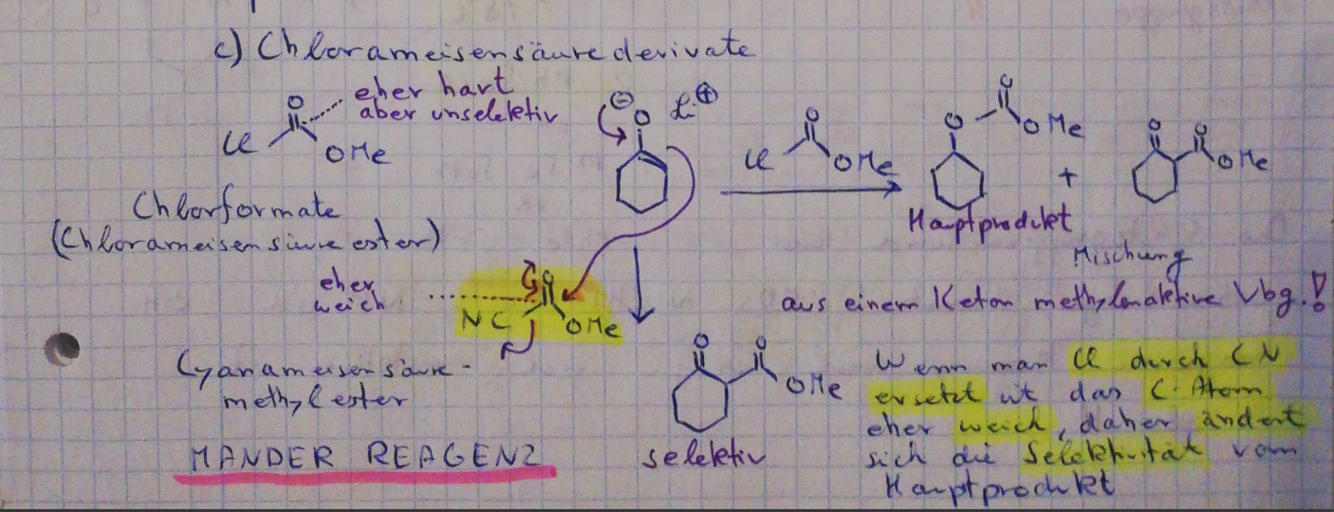 c) Chlorameisensäurederivate
eher hart
aber unselektiv
O
Cl
OMe
⊖
O
Li⊕
O
Cl
OMe
O
O
OMe
+
O
O
OMe
Chlorformate
(Chlorameisensäureester)
Hauptprodukt
Mischung
aus einem Keton methylenaktive Vbg.!
eher
weich
O
NC
OMe
Cyanameisensäure-
methylester
MANDER REAGENZ
O
O
OMe
selektiv
Wenn man Cl durch CN
ersetzt ist das C-Atom
eher weich, daher ändert
sich die Selektivität vom
Hauptprodukt